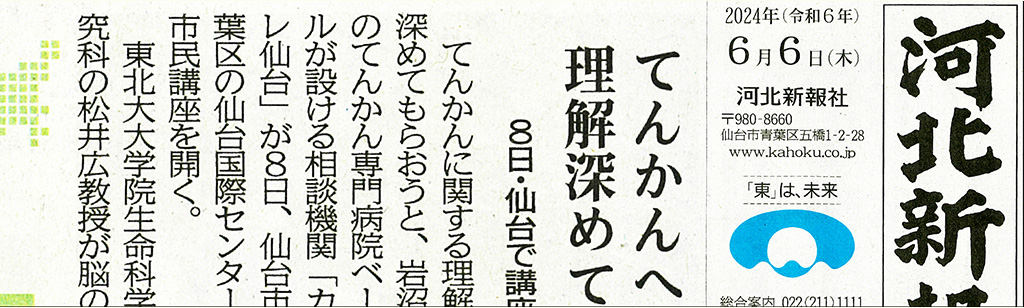 河北新
2024年(令和6年)
6月6日(木)
河北新報社
〒980-8660
仙台市青葉区五橋1-2-28
www.kahoku.co.jp
「東」は、未来
総合案内 022(211)1111
てんかんへ
理解深めて
8日・仙台で講座
てんかんに関する理解
深めてもらおうと、岩沼
のてんかん専門病院ベー
ルが設ける相談機関「カ
レ仙台」が8日、仙台市
葉区の仙台国際センター
市民講座を開く。
東北大大学院生命科学
究科の松井広教授が脳の